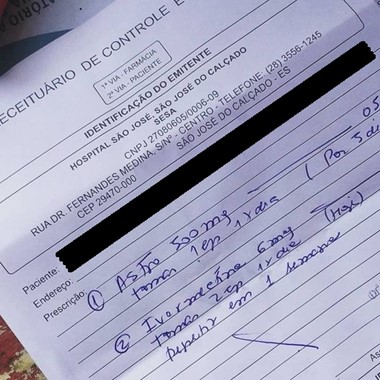 RECEITUÁRIO DE CONTROLE E
1ª VIA - FARMÁCIA
2ª VIA - PACIENTE
IDENTIFICAÇÃO DO EMITENTE
HOSPITAL SÃO JOSÉ, SÃO JOSÉ DO CALÇADO
SESA
CNPJ 27080605/0006-09
RUA DR. FERNANDES MEDINA, S/Nº - CENTRO - TELEFONE: (28) 3556-1245
CEP 29470-000 SÃO JOSÉ DO CALÇADO - ES
Paciente:
Endereço:
Prescrição:
① Astro 500mg 05
tomar 1cp 1x dia (Por 5 di
② Ivermectina 6mg (Hoje)
tomar 2cp 1x dia
repetir em 1 semana